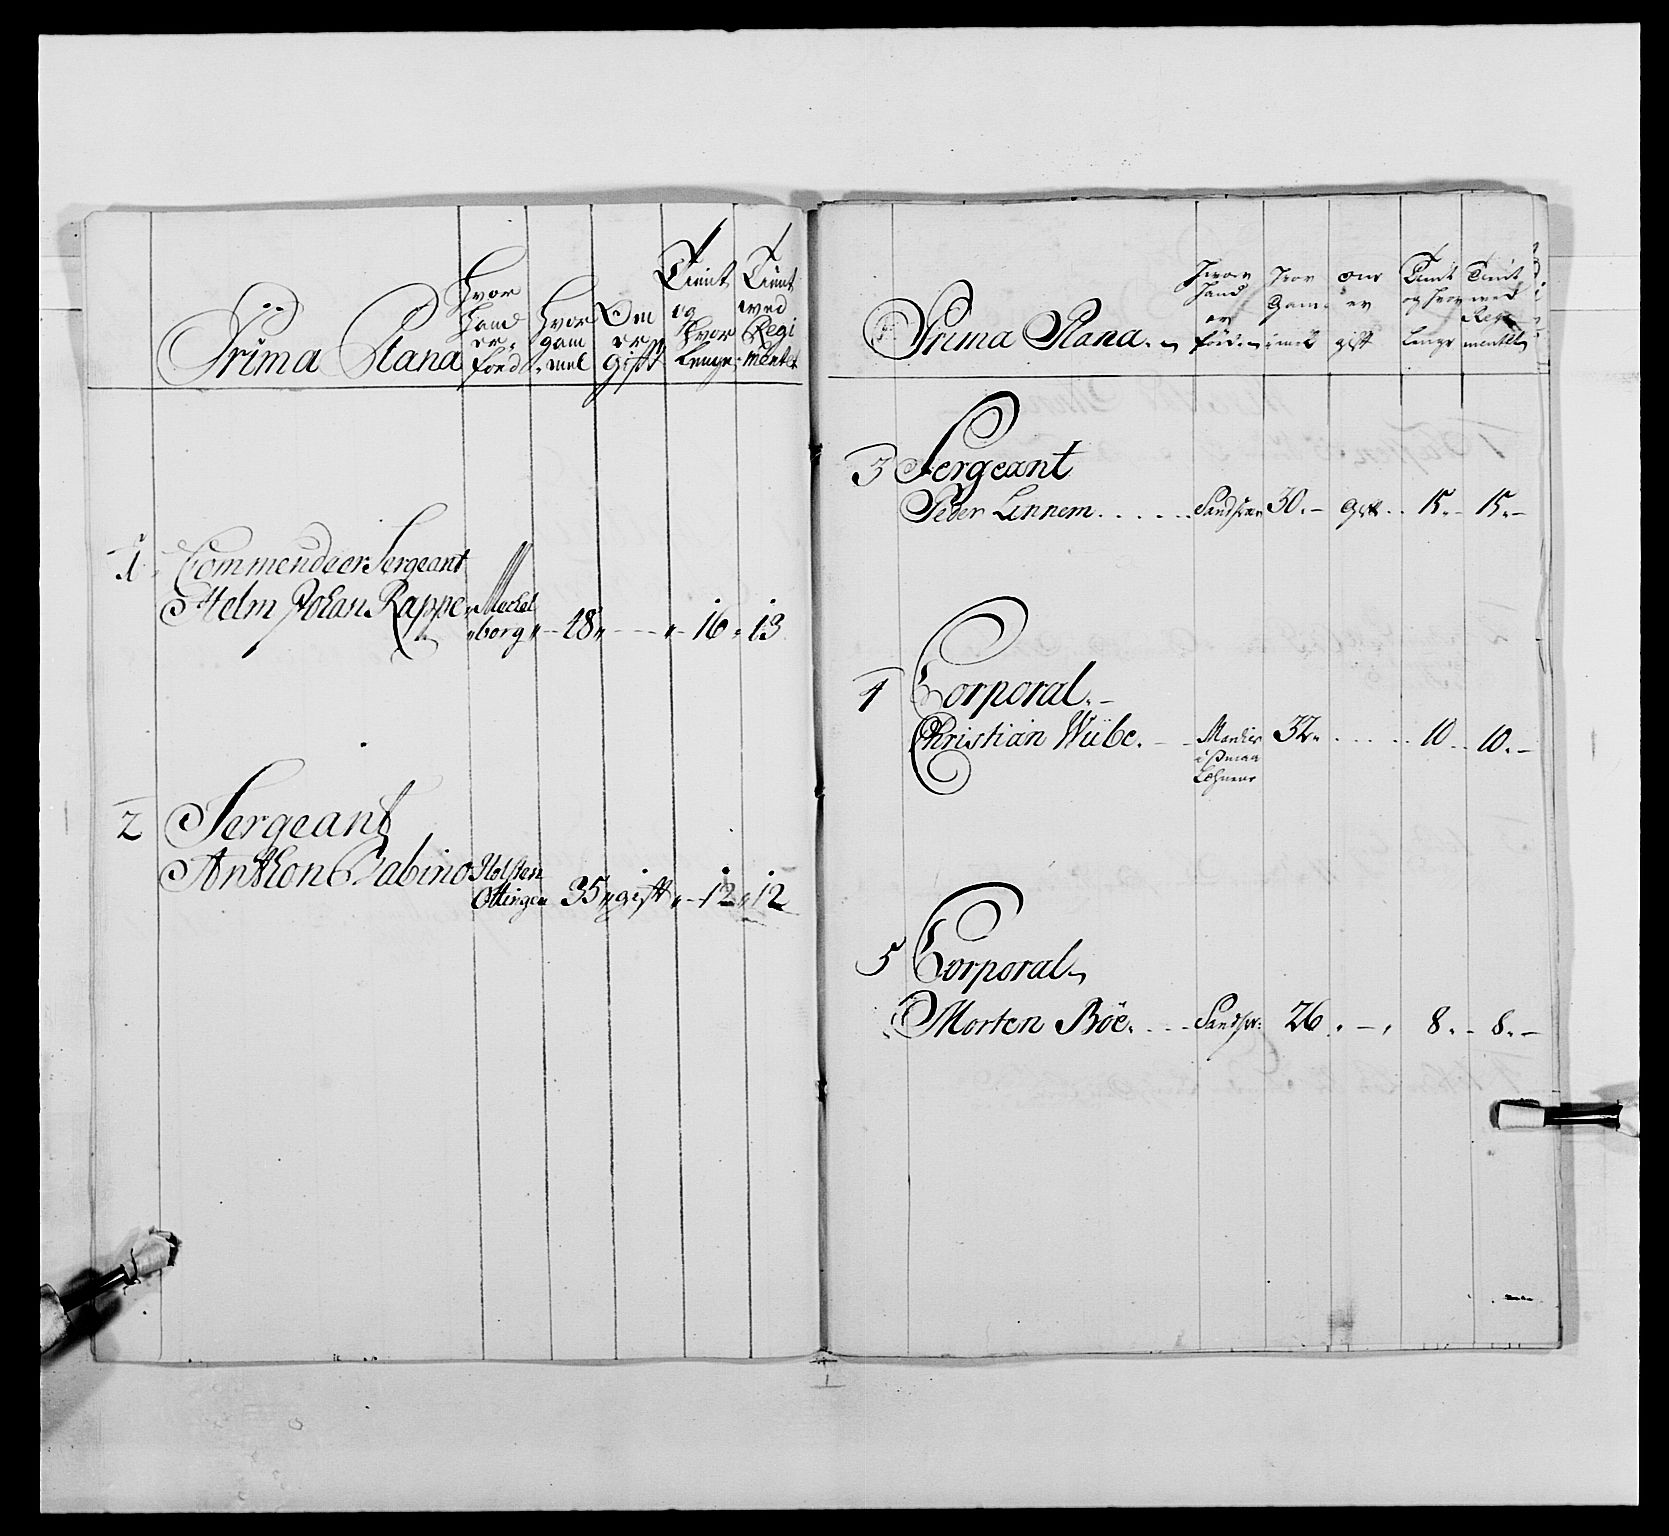 Prima Plana
Hvor hand er fød
Hvor gam mel
Om er gift
Tient og hvor lenge
Tient ved Regi mentet
1 Commendeer Sergeant
Helm Johan Rappe Meckel borg 48 16 13
2 Sergeant
Anthon Sabino Holsten Ottingen 35 gift 12 12
Prima Plana
Hvor hand er fød
Hvor Gam mel
Om er gift
Tient og hvor lenge
Tient ved Regi mentet
3 Sergeant
Peder Linnem 30. gift 15. 15.
4 Corporal.
Christian Wübe. 32. 10 10.
5 Corporal
Morten Böe. 26 8. 8.